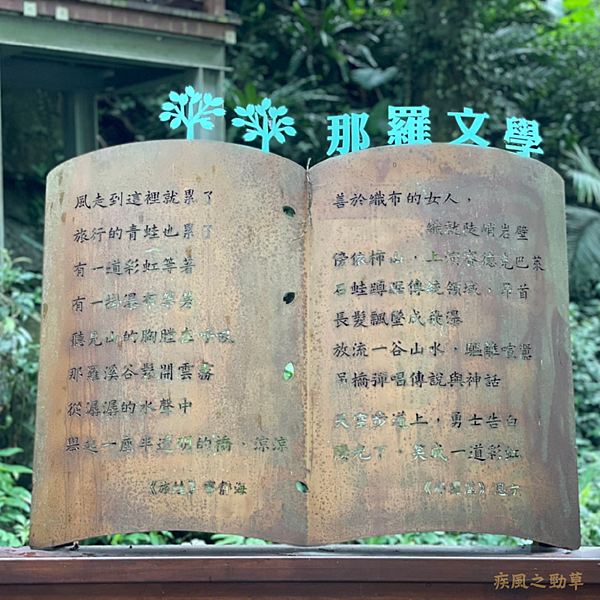 那羅文學
風走到這裡就累了
旅行的青蛙也累了
有一道彩虹等著
有一樹瀑布等著
聽見山的胸膛在呼吸
那羅溪谷鬆開雲霧
從潺潺的水聲中
架起一座半透明的橋,涼涼
善於織布的女人,
陡峭岩壁
傍依柿山,上
石蛙蹲踞傳統領域,昂首
長髮飄墜成飛瀑
放流一谷山水,驅離喧囂
吊橋彈唱傳說與神話
天空步道上,勇士告白
陽光下,笑成一道彩虹
疾風之勁草